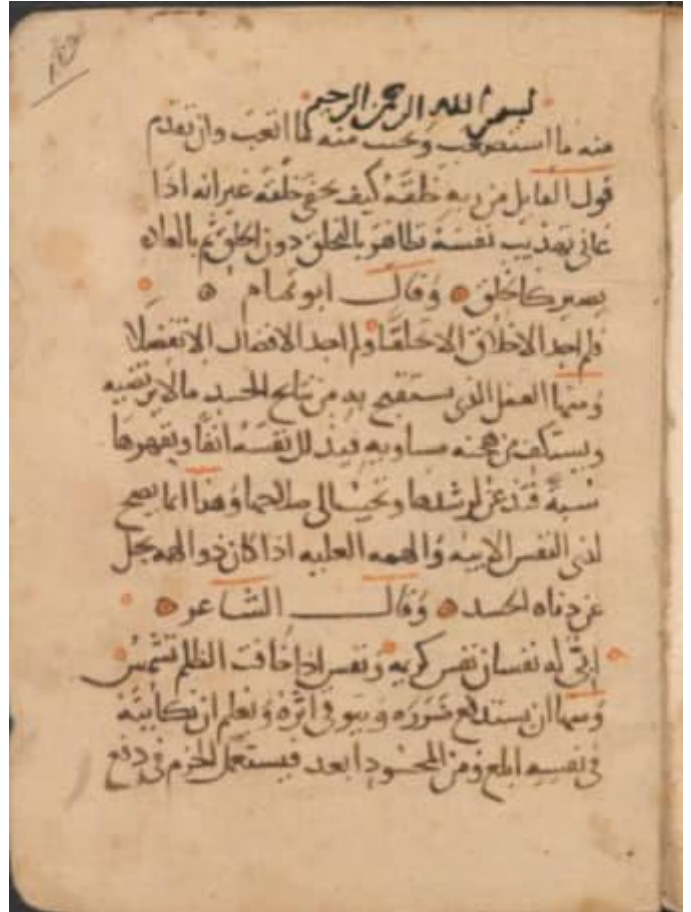 بسم الله الرحمن الرحيم
منه ما استصعب وتحبب منه ما اتعب وان تقدم
قول القايل من ربه خلقه كيف يخلي خلقه غير انه اذا
عانى تهذيب نفسه تظاهر بالتخلق دون الخلق ثم بالعاده
يصير كالخلق وقال ابو تمام
فلم اجد الاخلاق الا تخلقا ولم اجد الافضال الا تفضلا
ومنها العقل الذي يستقبح به من نتايج الحسد ما لا يرتضيه
ويستنكف من هجنه مساويه فيذلل نفسه انفا ويقهرها
فتذعن لرشدها وتجيب الى صلاحها وهذا انما يصح
لذي النفس الابيه والهمه العليه اذا كان ذو الهمه يجل
عن دناه الحسد وقال الشاعر
ابي له نفسان نفس كريمه ونفس اذا خافت الظلم تشمس
ومنها ان يستدفع ضرره ويتوقى اثره ويعلم ان نكايته
في نفسه ابلغ ومن المحسود ابعد فيستعمل الحزم في دفع